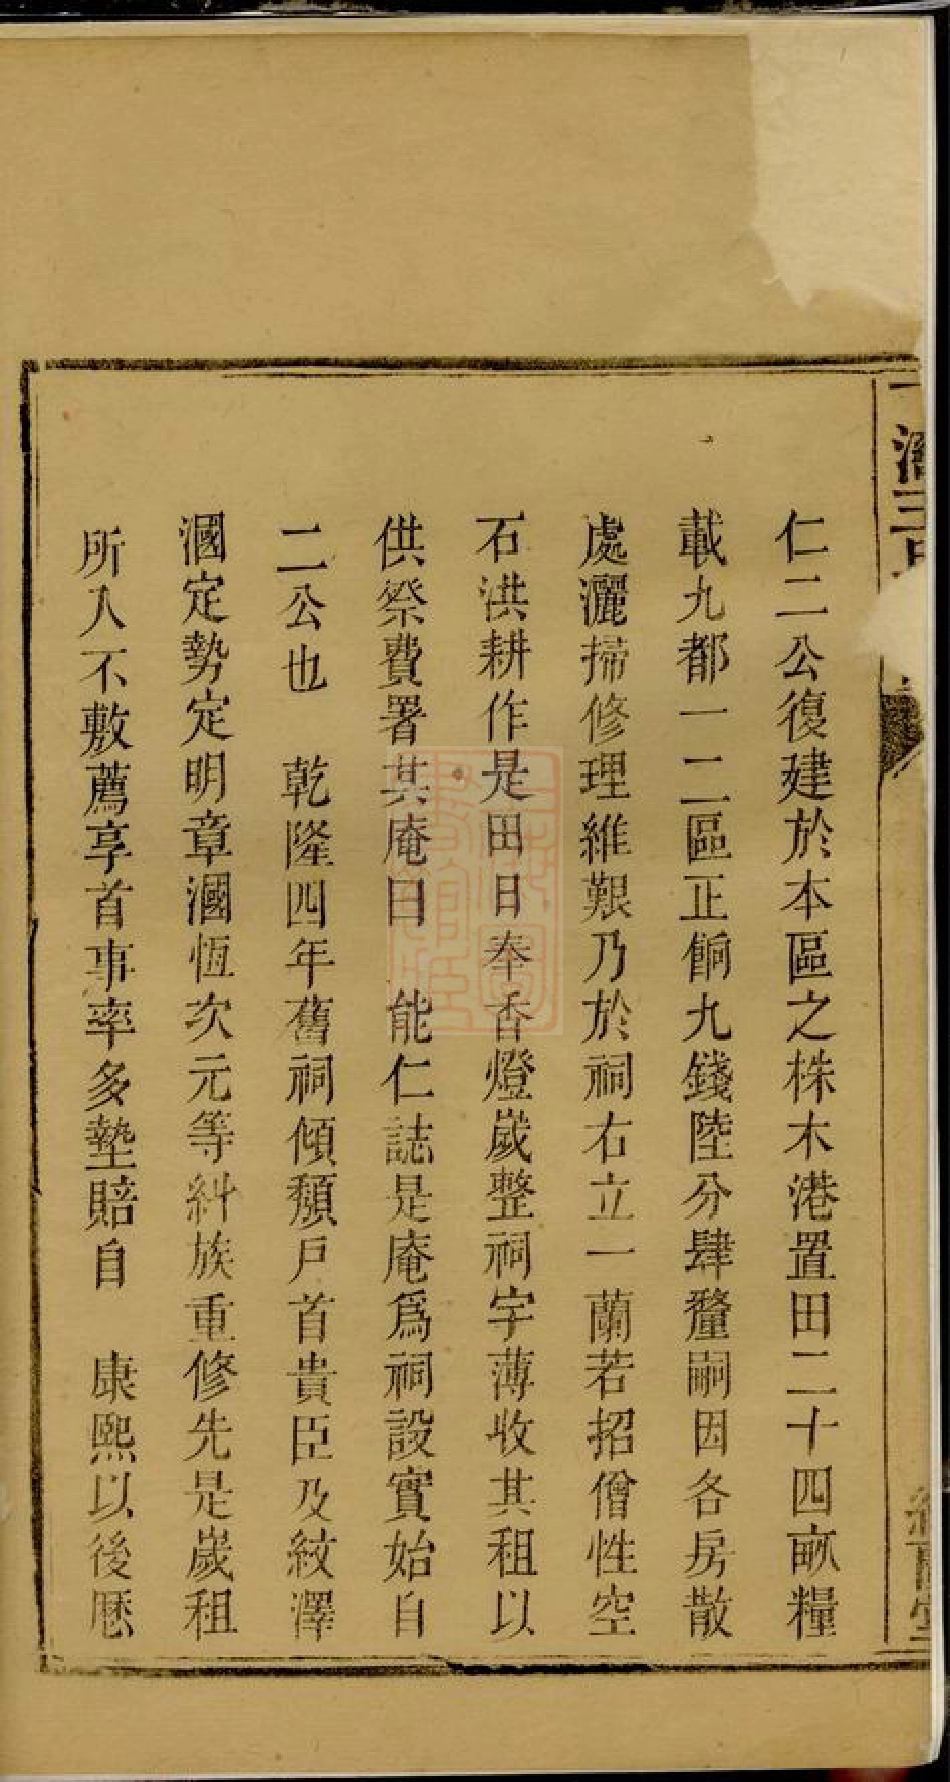 仁二公復建於本區之株木港置田二十四畝糧
載九都一二區正餉九錢陸分肆釐嗣因各房散
處灑掃修理維艱乃於祠右立一蘭若招僧性空
石洪耕作是田日奉香燈歲整祠宇薄收其租以
供祭費署其庵曰 能仁誌是庵爲祠設實始自
二公也 乾隆四年舊祠傾頽戶首貴臣及紋澤
漍定勢定明章漍恆次元等糾族重修先是歲租
所入不敷薦享首事率多墊賠自 康熙以後歷